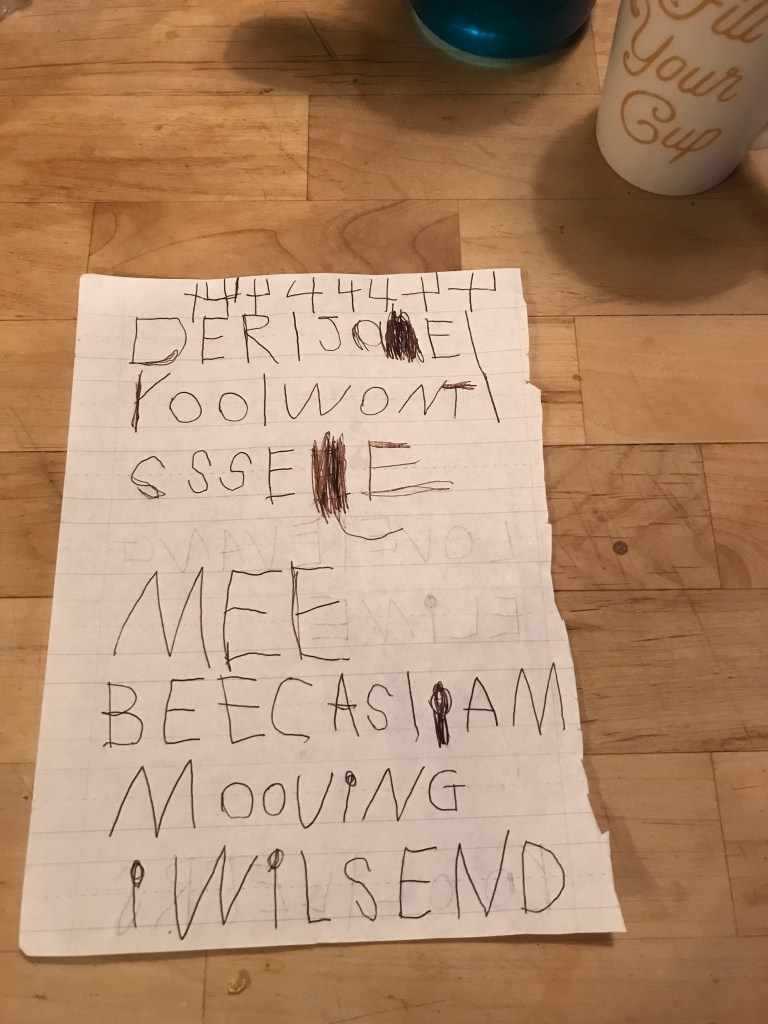 Fill
Your
Cup
DER|JOE|
YOO|WONT|
SSSEE
MEE
BEECAS|iAM
MOOViNG
iWiLSEND